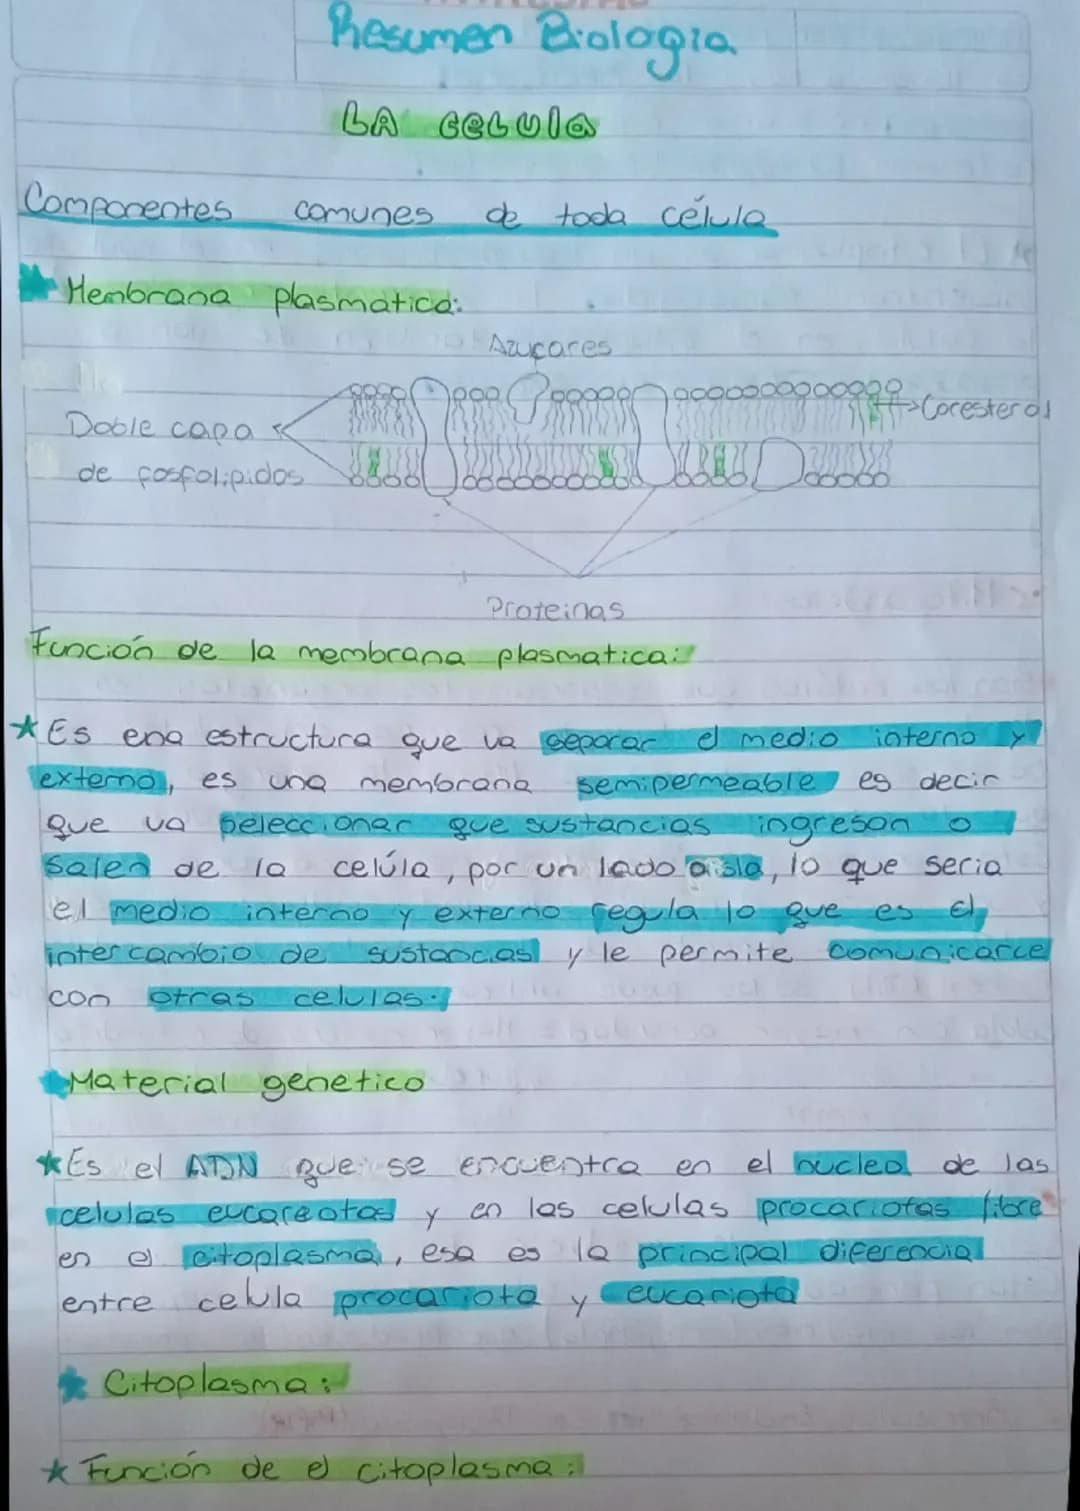 Resumen Biologia
LA CELULA
Componentes comunes de toda célula
Membrana plasmatica:
Azucares
Doble capa
de fosfolipidos
Coresterol
Proteinas
Función de la membrana plasmatica:
Es ena estructura que va separar el medio interno y
externo, es una membrana semipermeable es decir
que va seleccionar que sustancias ingresan o
salen de la celúla, por un lado aisla, lo que seria
el medio interno y externo regula lo que es el
intercambio de sustancias y le permite comunicarce
con otras celulas.
Material genetico
Es el ADN que se encuentra en el nucleo de las
celulas eucareotas y en las celulas procariotas libre
en el citoplasma, esa es la principal diferencia
entre celula procariota y eucariota
Citoplasma:
Función de el citoplasma: